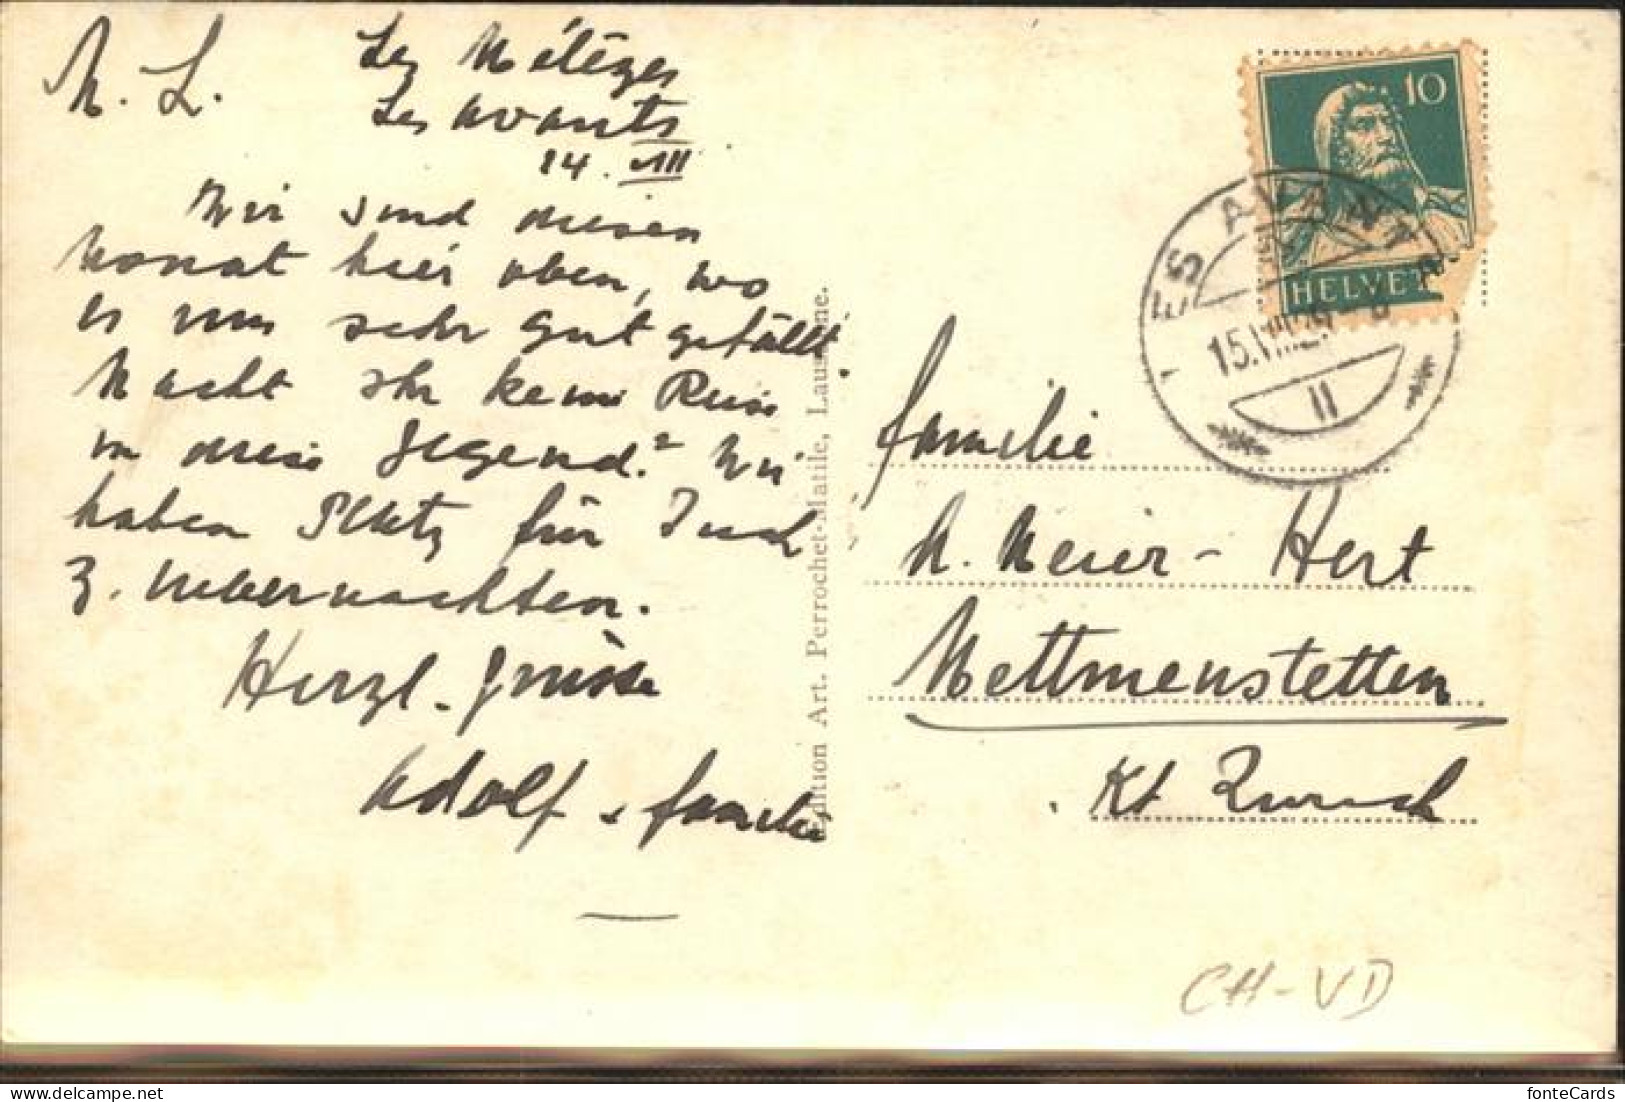 M. L.
Les Mélèzes
Les Avants
14. VIII
Wir sind diesen
Monat hier oben, wo
es uns sehr gut gefällt
Macht Ihr keine Reise
in diese Gegend? Wir
haben Platz für Euch
z. Uebernachten.
Herzl. Grüsse
Adolf & Familie
Edition Art. Perrochet-Matile, Lausanne.
10
HELVETIA
LES AVANTS
15.VIII.29
II
Familie
A. Meier-Hert
Mettmenstetten
Kt Zürich
CH-VD
delcampe.net
fonteCards